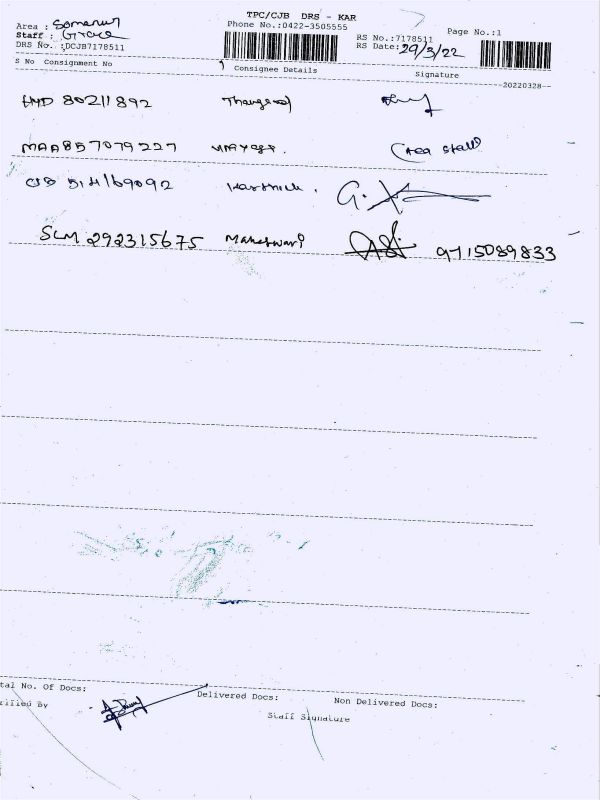 TPC/CJB DRS - KAR
Phone No.:0422-3505555
Area : Somanur
Staff : Grace
DRS No. :DCJB7178511
RS No.:7178511 Page No.:1
RS Date: 29/3/22
S No Consignment No Consignee Details Signature
--20220328--
HMD 80211892
MAA857079227
CJB 514169092 Karthick . G.
SLM 292315675 Maheswari 9715089833
tal No. Of Docs: Delivered Docs: Non Delivered Docs:
rified By Staff Signature